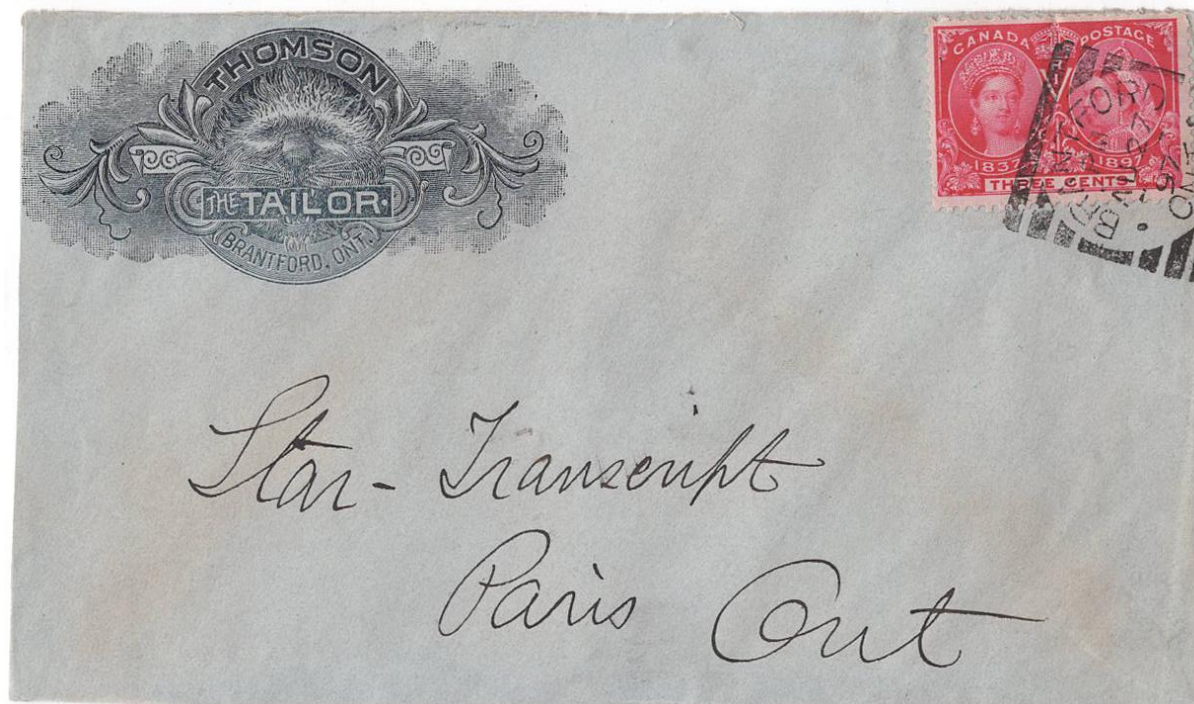 THOMSON
THE TAILOR.
BRANTFORD. ONT.
CANADA POSTAGE
1837 1897
THREE CENTS
BRANTFORD
Star-Transcript
Paris Ont